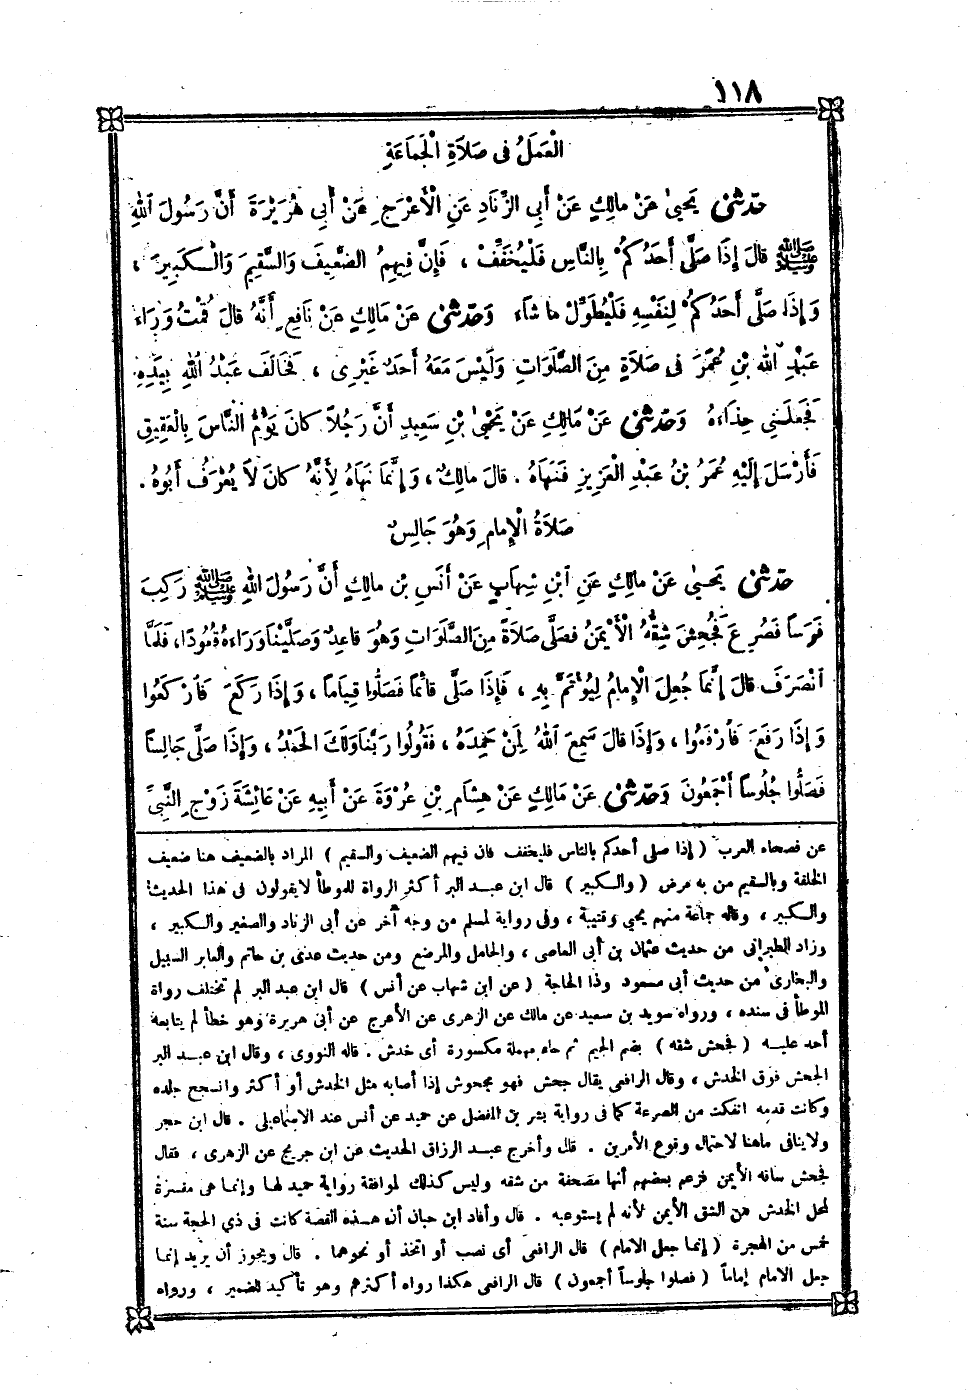 ١١٨
الْعَمَلُ فِى صَلَاةِ الْجَمَاعَةِ
حَدّثَنِى يَحْيَىٰ عَنْ مَالِكٍ عَنْ أَبِى الزِّنَادِ عَنِ الْأَعْرَجِ عَنْ أَبِى هُرَيْرَةَ أَنَّ رَسُولَ اللهِ
ﷺ قَالَ إِذَا صَلَّى أَحَدُكُمْ بِالنَّاسِ فَلْيُخَفِّفْ ، فَإِنَّ فِيهِمُ الضَّعِيفَ وَالسَّقِيمَ وَالْكَبِيرَ ،
وَإِذَا صَلَّى أَحَدُكُمْ لِنَفْسِهِ فَلْيُطَوِّلْ مَا شَاءَ وَحَدّثَنِى عَنْ مَالِكٍ عَنْ نَافِعٍ أَنَّهُ قَالَ قُمْتُ وَرَاءَ
عَبْدِ اللهِ بْنِ عُمَرَ فِى صَلَاةٍ مِنَ الصَّلَوَاتِ وَلَيْسَ مَعَهُ أَحَدٌ غَيْرِى ، فَخَالَفَ عَبْدُ اللهِ بِيَدِهِ
فَجَعَلَنِى حِذَاءَهُ وَحَدّثَنِى عَنْ مَالِكٍ عَنْ يَحْيَىٰ بْنِ سَعِيدٍ أَنَّ رَجُلاً كَانَ يَؤُمُّ النَّاسَ بِالْعَقِيقِ
فَأَرْسَلَ إِلَيْهِ عُمَرُ بْنُ عَبْدِ الْعَزِيزِ فَنَهَاهُ . قَالَ مَالِكٌ ، وَإِنَّمَا نَهَاهُ لِأَنَّهُ كَانَ لاَ يُعْرَفُ أَبُوهُ .
صَلَاةُ الْإِمَامِ وَهُوَ جَالِسٌ
حَدّثَنِى يَحْيَىٰ عَنْ مَالِكٍ عَنِ ابْنِ شِهَابٍ عَنْ أَنَسِ بْنِ مَالِكٍ أَنَّ رَسُولَ اللهِ ﷺ رَكِبَ
فَرَسًا فَصُرِعَ فَجُحِشَ شِقُّهُ الْأَيْمَنُ فَصَلَّى صَلَاةً مِنَ الصَّلَوَاتِ وَهُوَ قَاعِدٌ وَصَلَّيْنَا وَرَاءَهُ قُعُودًا ، فَلَمَّا
انْصَرَفَ قَالَ إِنَّمَا جُعِلَ الْإِمَامُ لِيُؤْتَمَّ بِهِ ، فَإِذَا صَلَّى قَائِمًا فَصَلُّوا قِيَامًا ، وَإِذَا رَكَعَ فَارْكَعُوا
وَإِذَا رَفَعَ فَارْفَعُوا ، وَإِذَا قَالَ سَمِعَ اللهُ لِمَنْ حَمِدَهُ ، فَقُولُوا رَبَّنَا وَلَكَ الْحَمْدُ ، وَإِذَا صَلَّى جَالِسًا
فَصَلُّوا جُلُوسًا أَجْمَعُونَ وَحَدّثَنِى عَنْ مَالِكٍ عَنْ هِشَامِ بْنِ عُرْوَةَ عَنْ أَبِيهِ عَنْ عَائِشَةَ زَوْجِ النَّبِىِّ
عن فصحاء العرب ( إذا صلى أحدكم بالناس فليخفف فان فيهم الضعيف والسقيم ) المراد بالضعيف هنا ضعيف
الخلقة وبالسقيم من به مرض ( والكبير ) قال ابن عبد البر أكثر الرواة للموطأ لايقولون فى هذا الحديث
والكبير ، وقاله جماعة منهم يحيى وقتيبة ، وفى رواية لمسلم من وجه آخر عن أبى الزناد والصغير والكبير ،
وزاد الطبرانى من حديث عثمان بن أبى العاصى ، والحامل والمرضع ومن حديث عدى بن حاتم والعابر السبيل
والبخارى من حديث أبى مسعود وذا الحاجة ( عن ابن شهاب عن أنس ) قال ابن عبد البر لم تختلف رواة
الموطأ فى سنده ، ورواه سويد بن سعيد عن مالك عن الزهرى عن الأعرج عن أبى هريرة وهو خطأ لم يتابعه
أحد عليه ( فجحش شقه ) بضم الجيم ثم حاء مهملة مكسورة أى خدش . قاله النووى ، وقال ابن عبد البر
الجحش فوق الخدش ، وقال الرافعى يقال جحش فهو مجحوش إذا أصابه مثل الخدش أو أكثر وانسحج جلده
وكانت قدمه انفكت من الصرعة كما فى رواية بشر بن المفضل عن حميد عن أنس عند الاسماعيلى . قال ابن حجر
ولاينافى ماهنا لاحتمال وقوع الأمرين . قلت وأخرج عبد الرزاق الحديث عن ابن جريج عن الزهرى ، فقال
فجحش ساقه الأيمن فزعم بعضهم أنها مصحفة من شقه وليس كذلك لموافقة رواية حميد لها وإنما هى مفسرة
لمحل الخدش من الشق الأيمن لأنه لم يستوعبه . قال وأفاد ابن حبان أن هذه القصة كانت فى ذي الحجة سنة
خمس من الهجرة ( إنما جعل الامام ) قال الرافعى أى نصب أو اتخذ أو نحوهما . قال ويجوز أن يريد إنما
جعل الامام إماماً ( فصلوا جلوساً أجمعون ) قال الرافعى هكذا رواه أكثرهم وهو تأكيد للضمير ، ورواه